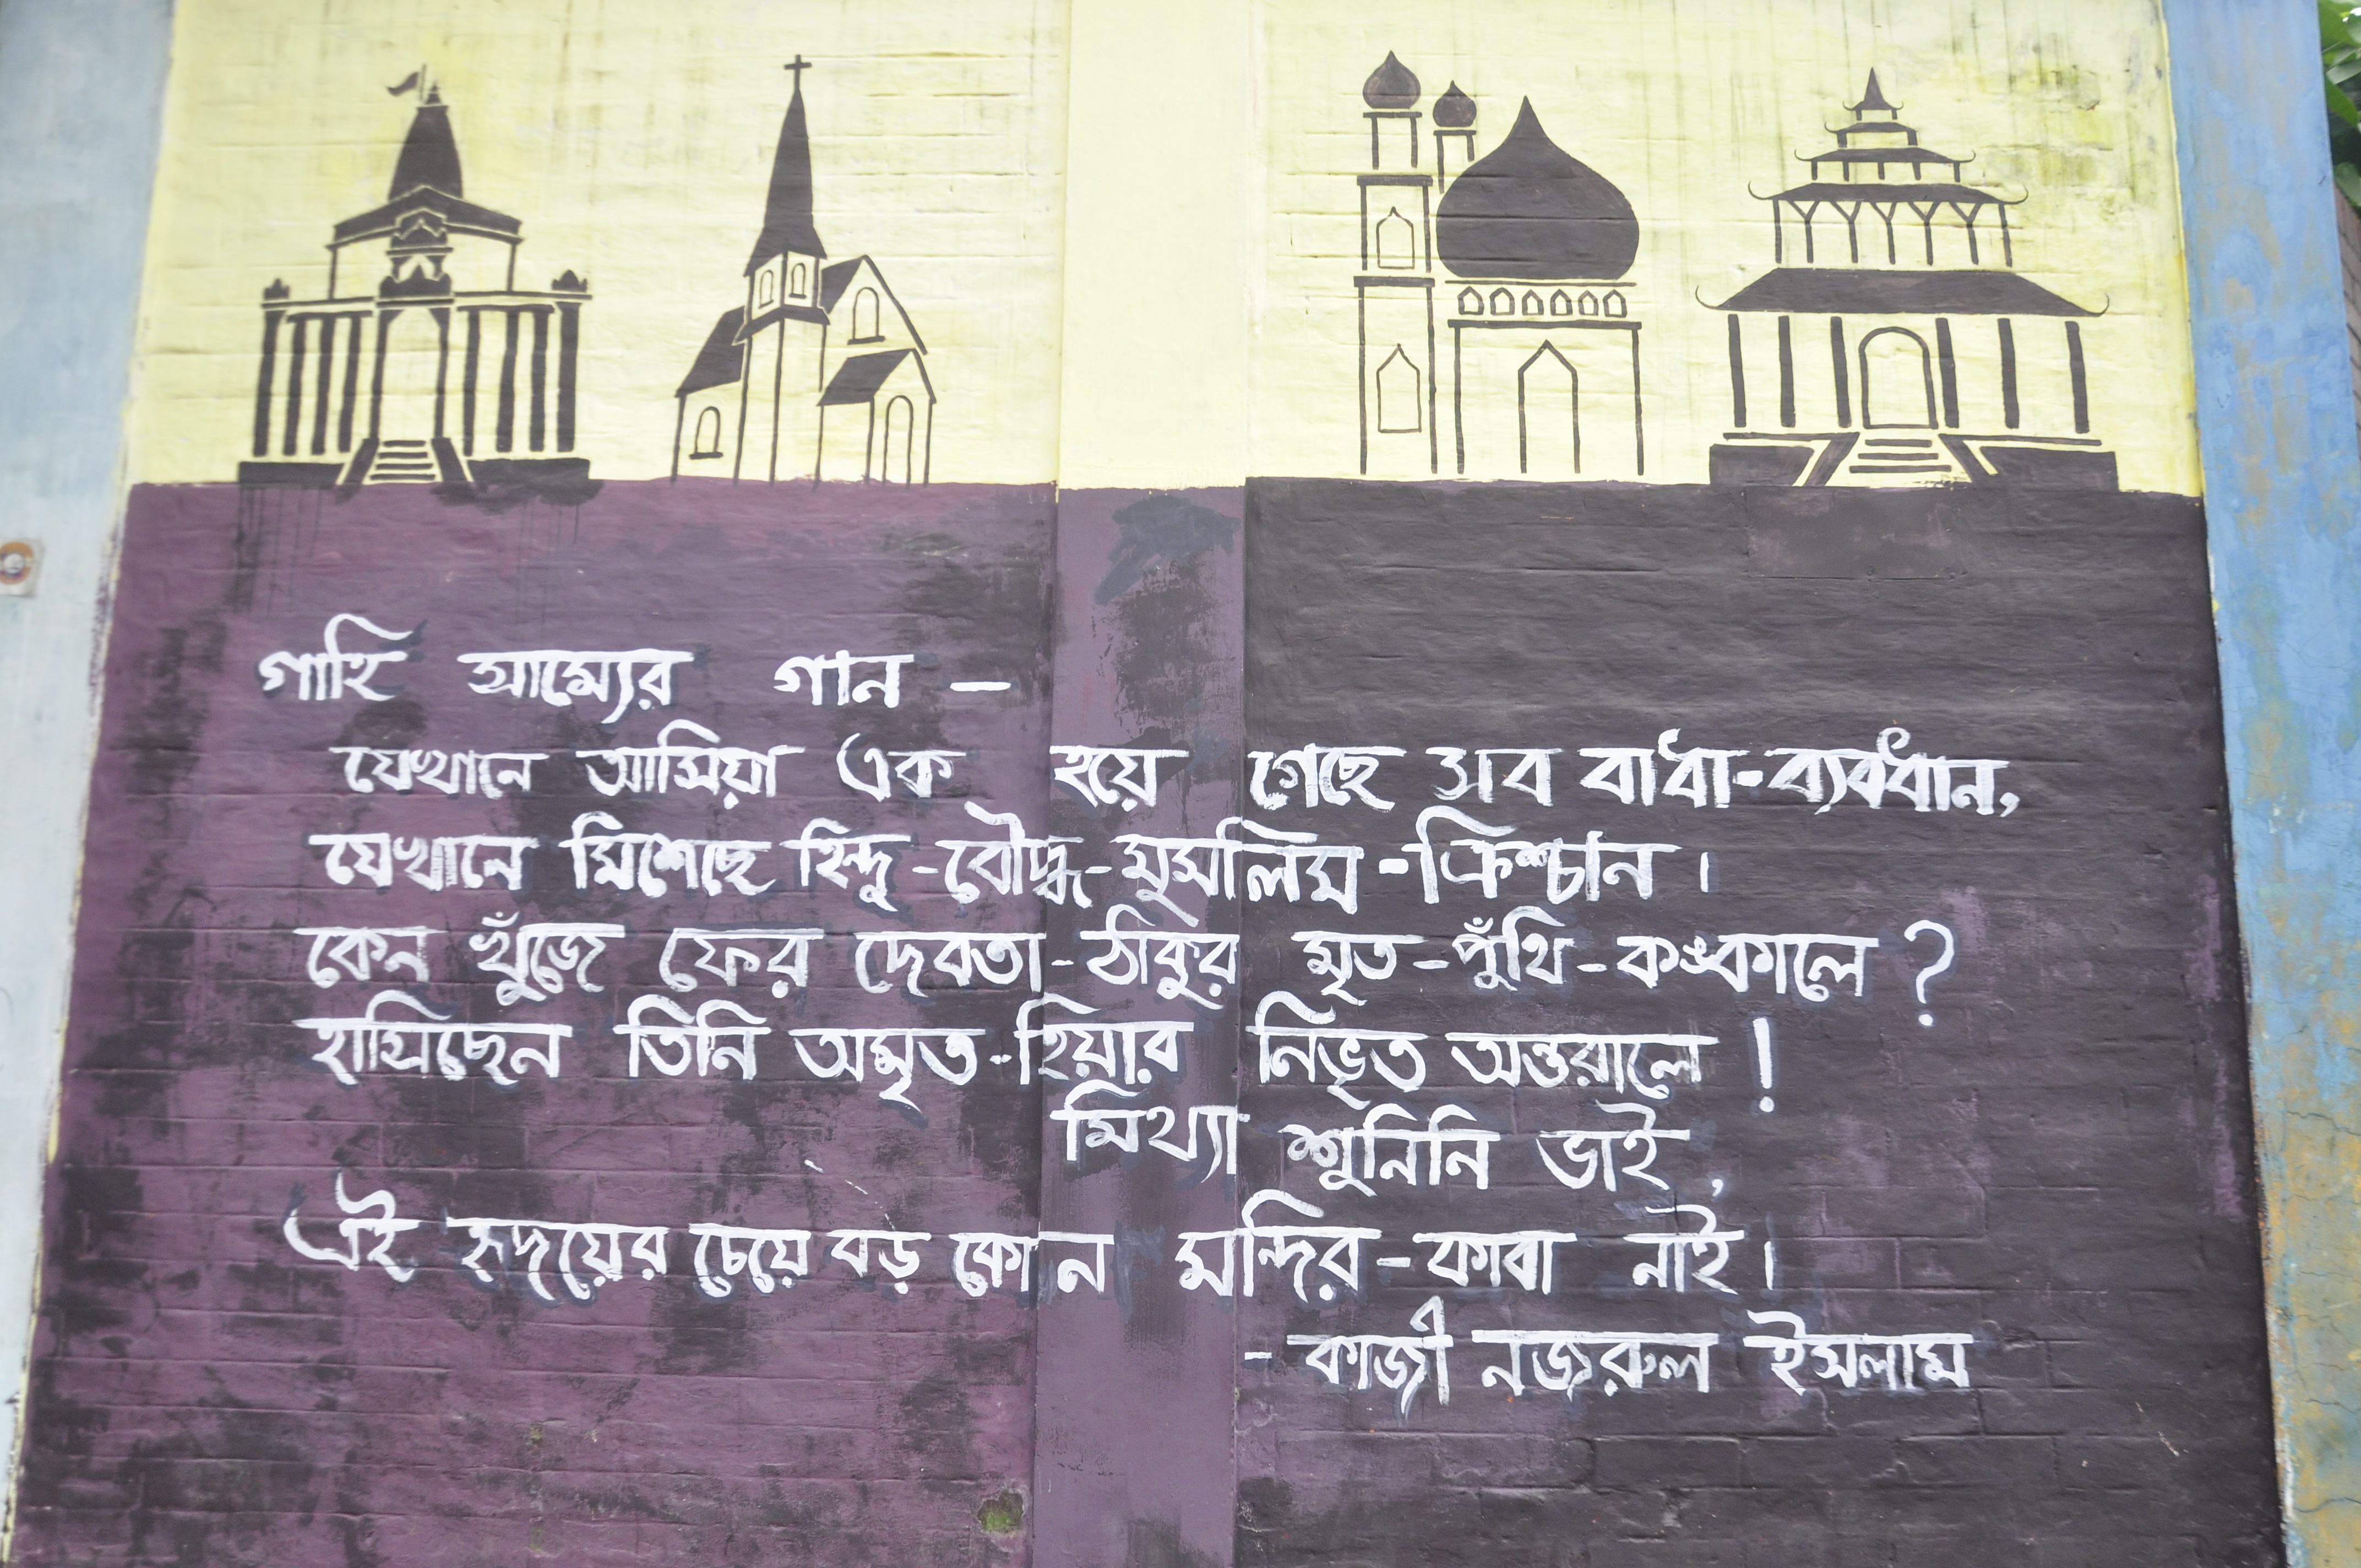 গাহি সাম্যের গান –
যেখানে আসিয়া এক হয়ে গেছে সব বাধা-ব্যবধান,
যেখানে মিশেছে হিন্দু-বৌদ্ধ-মুসলিম-ক্রিশ্চান।
কেন খুঁজে ফের দেবতা-ঠাকুর মৃত-পুঁথি-কঙ্কালে ?
হাসিছেন তিনি অমৃত-হিয়ার নিভৃত অন্তরালে !
মিথ্যা শুনিনি ভাই,
এই হৃদয়ের চেয়ে বড় কোন মন্দির-কাবা নাই।
- কাজী নজরুল ইসলাম